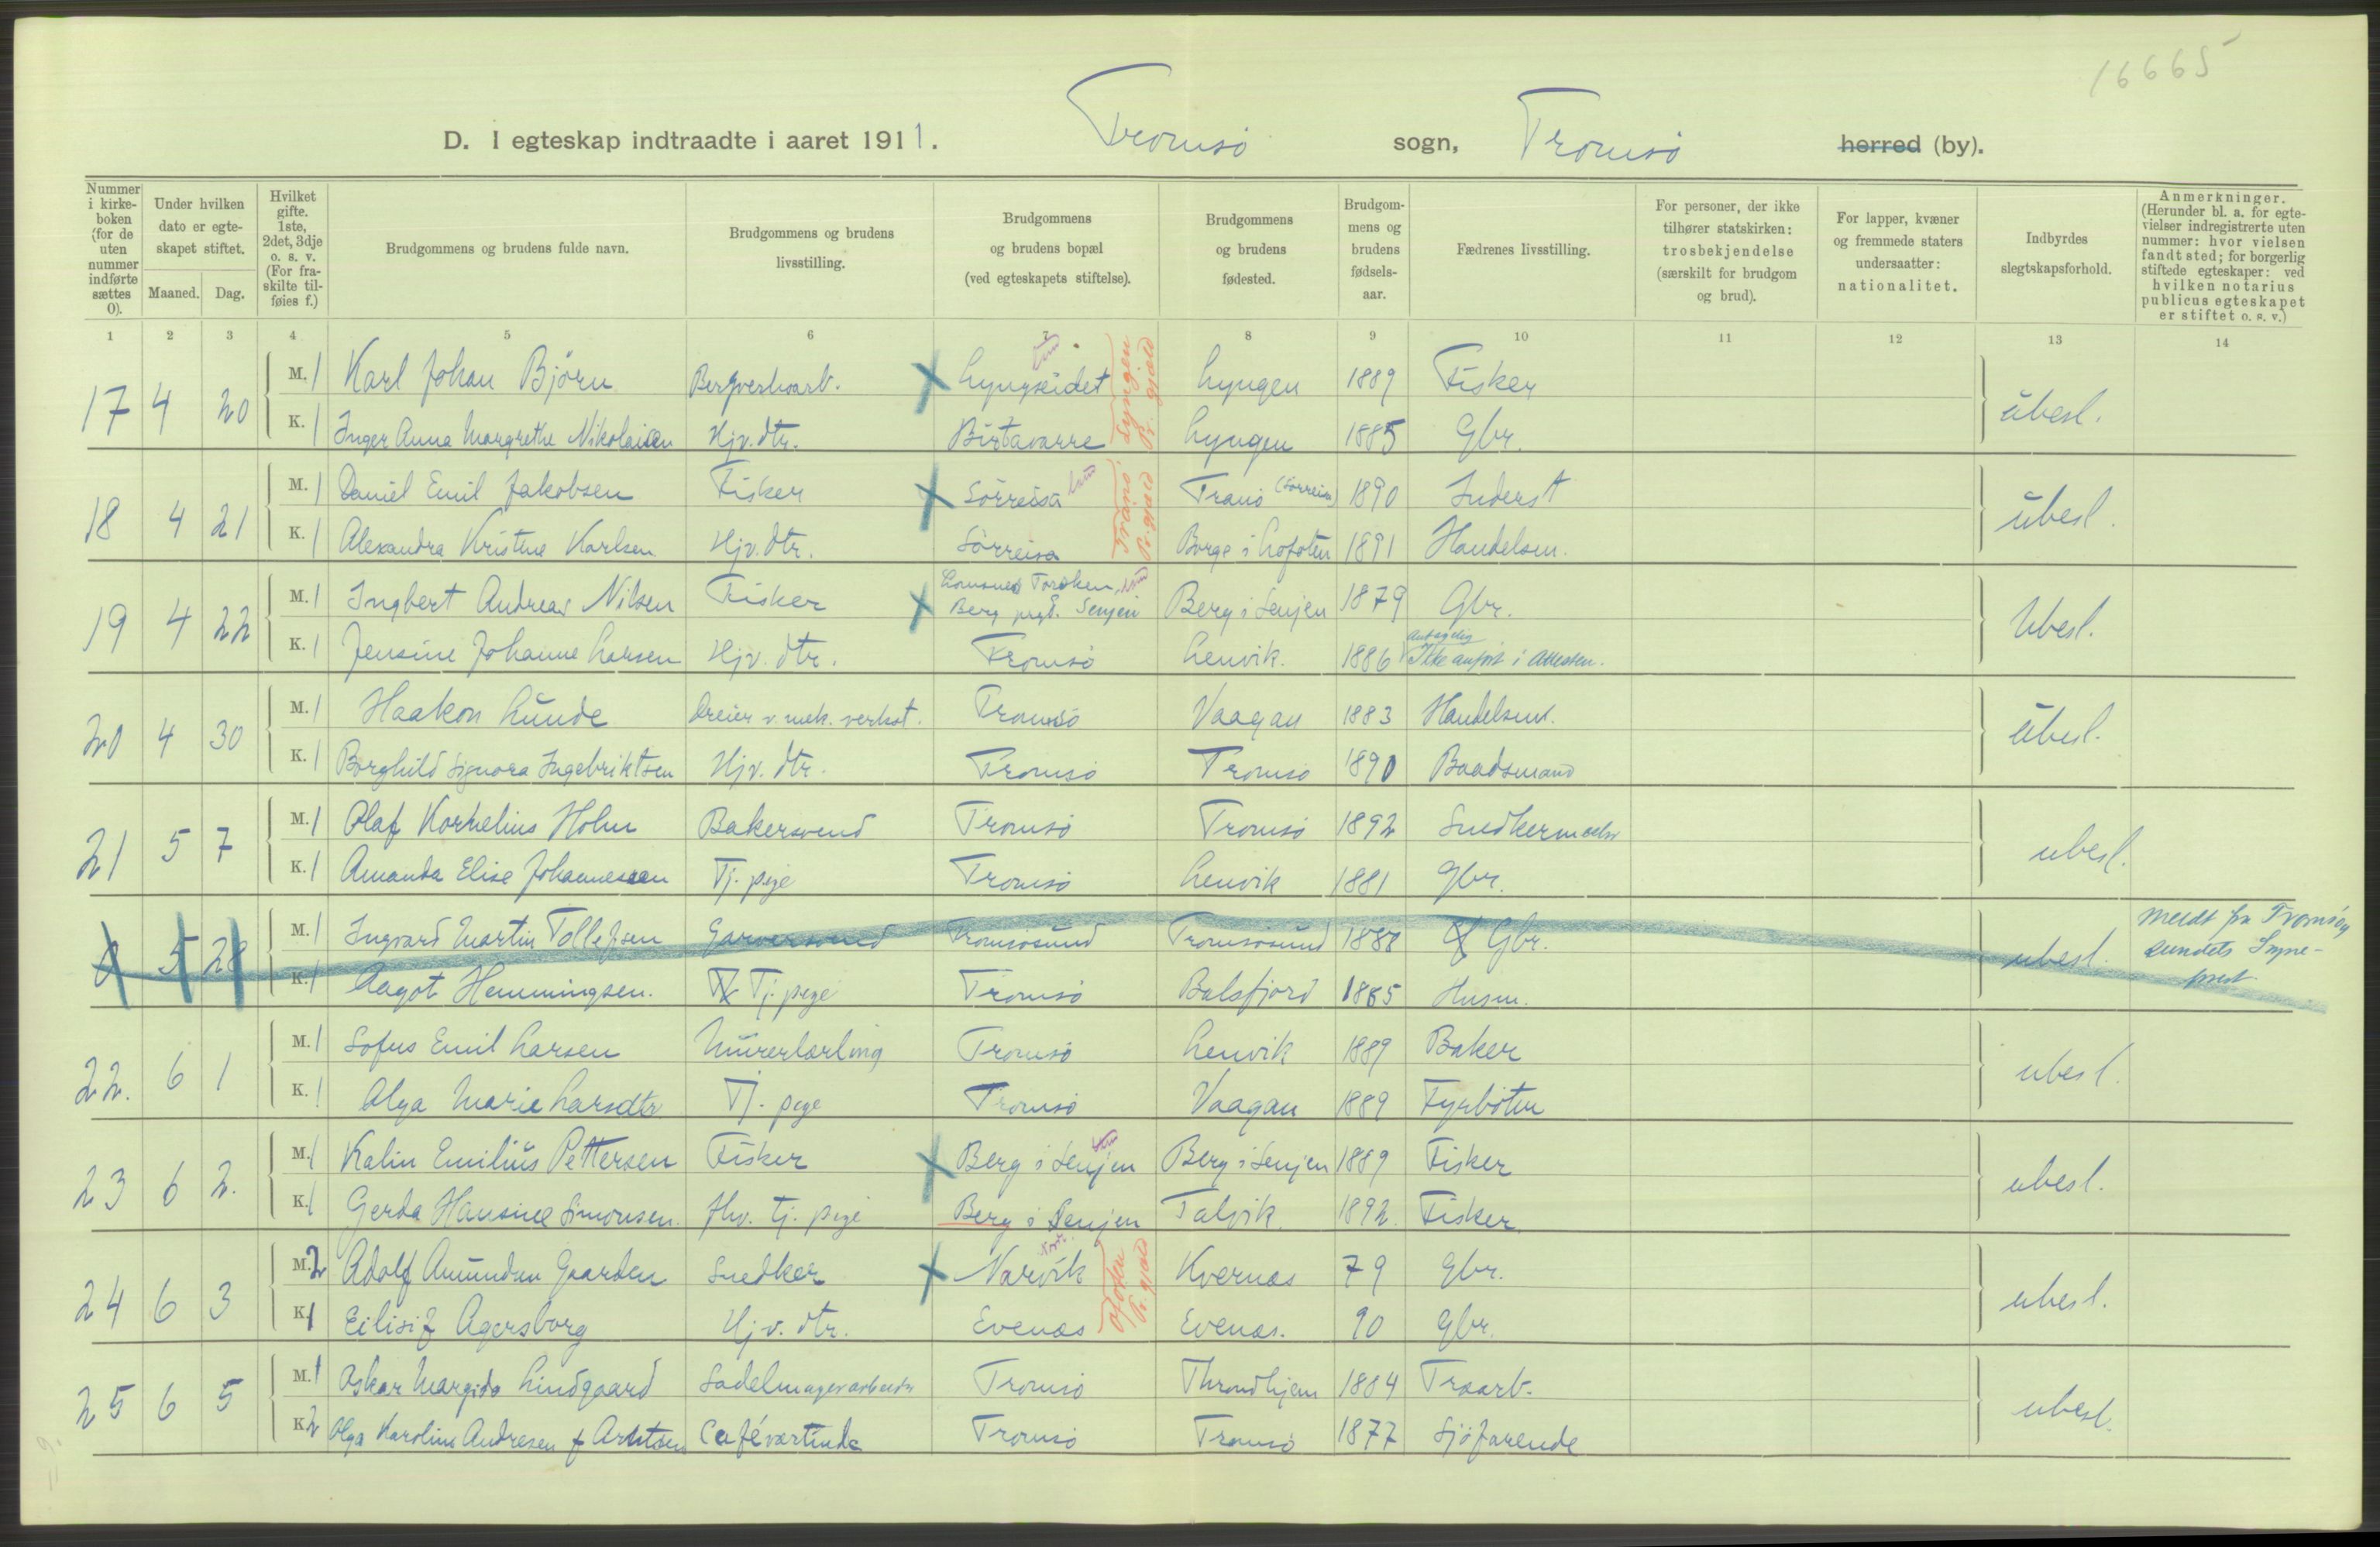 16665
D. I egteskap indtraadte i aaret 1911. Tromsö sogn, Tromsö herred (by).
Nummer i kirke-boken (for de uten nummer indførte sættes 0). Under hvilken dato er egte-skapet stiftet. Maaned. Dag. Hvilket gifte. 1ste, 2det, 3dje o. s. v. (For fra-skilte til-føies f.) Brudgommens og brudens fulde navn. Brudgommens og brudens livsstilling. Brudgommens og brudens bopæl (ved egteskapets stiftelse). Brudgommens og brudens fødested. Brudgom-mens og brudens fødsels-aar. Fædrenes livsstilling. For personer, der ikke tilhører statskirken: trosbekjendelse (særskilt for brudgom og brud). For lapper, kvæner og fremmede staters undersaatter: nationalitet. Indbyrdes slegtskapsforhold. Anmerkninger. (Herunder bl. a. for egte-vielser indregistrerte uten nummer: hvor vielsen fandt sted; for borgerlig stiftede egteskaper: ved hvilken notarius publicus egteskapet er stiftet o. s. v.)
1 2 3 4 5 6 7 8 9 10 11 12 13 14
17 4 20 M. 1 Karl Johan Björn Bergverksarb. Lyngseidet Lyngen 1889 Fisker ubesl.
K. 1 Inger Anna Margrethe Nikolaisen Hjv. dtr. Birtavarre Lyngen 1885 Gbr.
Lyngen Pr.gjæld
18 4 21 M. 1 Daniel Emil Jakobsen Fisker Sörreisa Tranö (Sörreisa) 1890 Inderst ubesl.
K. 1 Alexandra Kristine Karlsen Hjv. dtr. Sörreisa Borge i Lofoten 1891 Handelsm.
Tranö Pr.gjæld
19 4 22 M. 1 Ingbert Andreas Nilsen Fisker Torsken, Berg prgd. Senjen Berg i Senjen 1879 Gbr. Ubesl.
K. 1 Jensine Johanne Larsen Hjv. dtr. Tromsö Lenvik. 1886 Antagelig Ikke anfört i Attesten.
20 4 30 M. 1 Haakon Lunde Dreier v. mek. verkst. Tromsö Vaagan 1883 Handelsm. ubesl.
K. 1 Borghild Signora Ingebriktsen Hjv. dtr. Tromsö Tromsö 1890 Baadsmand
21 5 7 M. 1 Olaf Kornelius Holm Bakersvend Tromsö Tromsö 1892 Snedkermester ubesl.
K. 1 Amanda Elise Johannessen Tj. pige Tromsö Lenvik 1881 Gbr.
0 5 28 M. 1 Ingvard Martin Tollefsen Garversvend Tromsösund Tromsösund 1888 Gbr. ubesl. Meldt fra Tromsöysundets Sogneprest
K. 1 Aagot Hemmingsen. Tj. pige Tromsö Balsfjord 1885 Husm.
22. 6 1 M. 1 Sofus Emil Larsen Murerlærling Tromsö Lenvik 1889 Baker ubesl.
K. 1 Olga Marie Larsdtr Tj. pige Tromsö Vaagan 1889 Fyrböter
23 6 2. M. 1 Kalin Emilius Pettersen Fisker Berg i Senjen Berg i Senjen 1889 Fisker ubesl.
K. 1 Gerda Hansine Simonsen. fhv. tj. pige Berg i Senjen Talvik. 1892. Fisker
24 6 3 M. 2 Adolf Amundsen Gaarden Snedker Narvik Kvernæs 79 Gbr. ubesl.
K. 1 Eilisif Agersborg Hjv. dtr. Evenæs Evenæs. 90 Gbr.
Ofoten Pr.gjæld
25 6 5 M. 1 Oskar Margido Lindgaard Sadelmagerarbeider Tromsö Throndhjem 1884 Træarb. ubesl.
K. 2 Olga Karoline Andresen f Arntsen Caféværtinde Tromsö Tromsö 1877 Sjöfarende